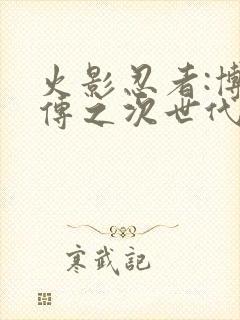 火影忍者:博
傳之次世代
寒武記